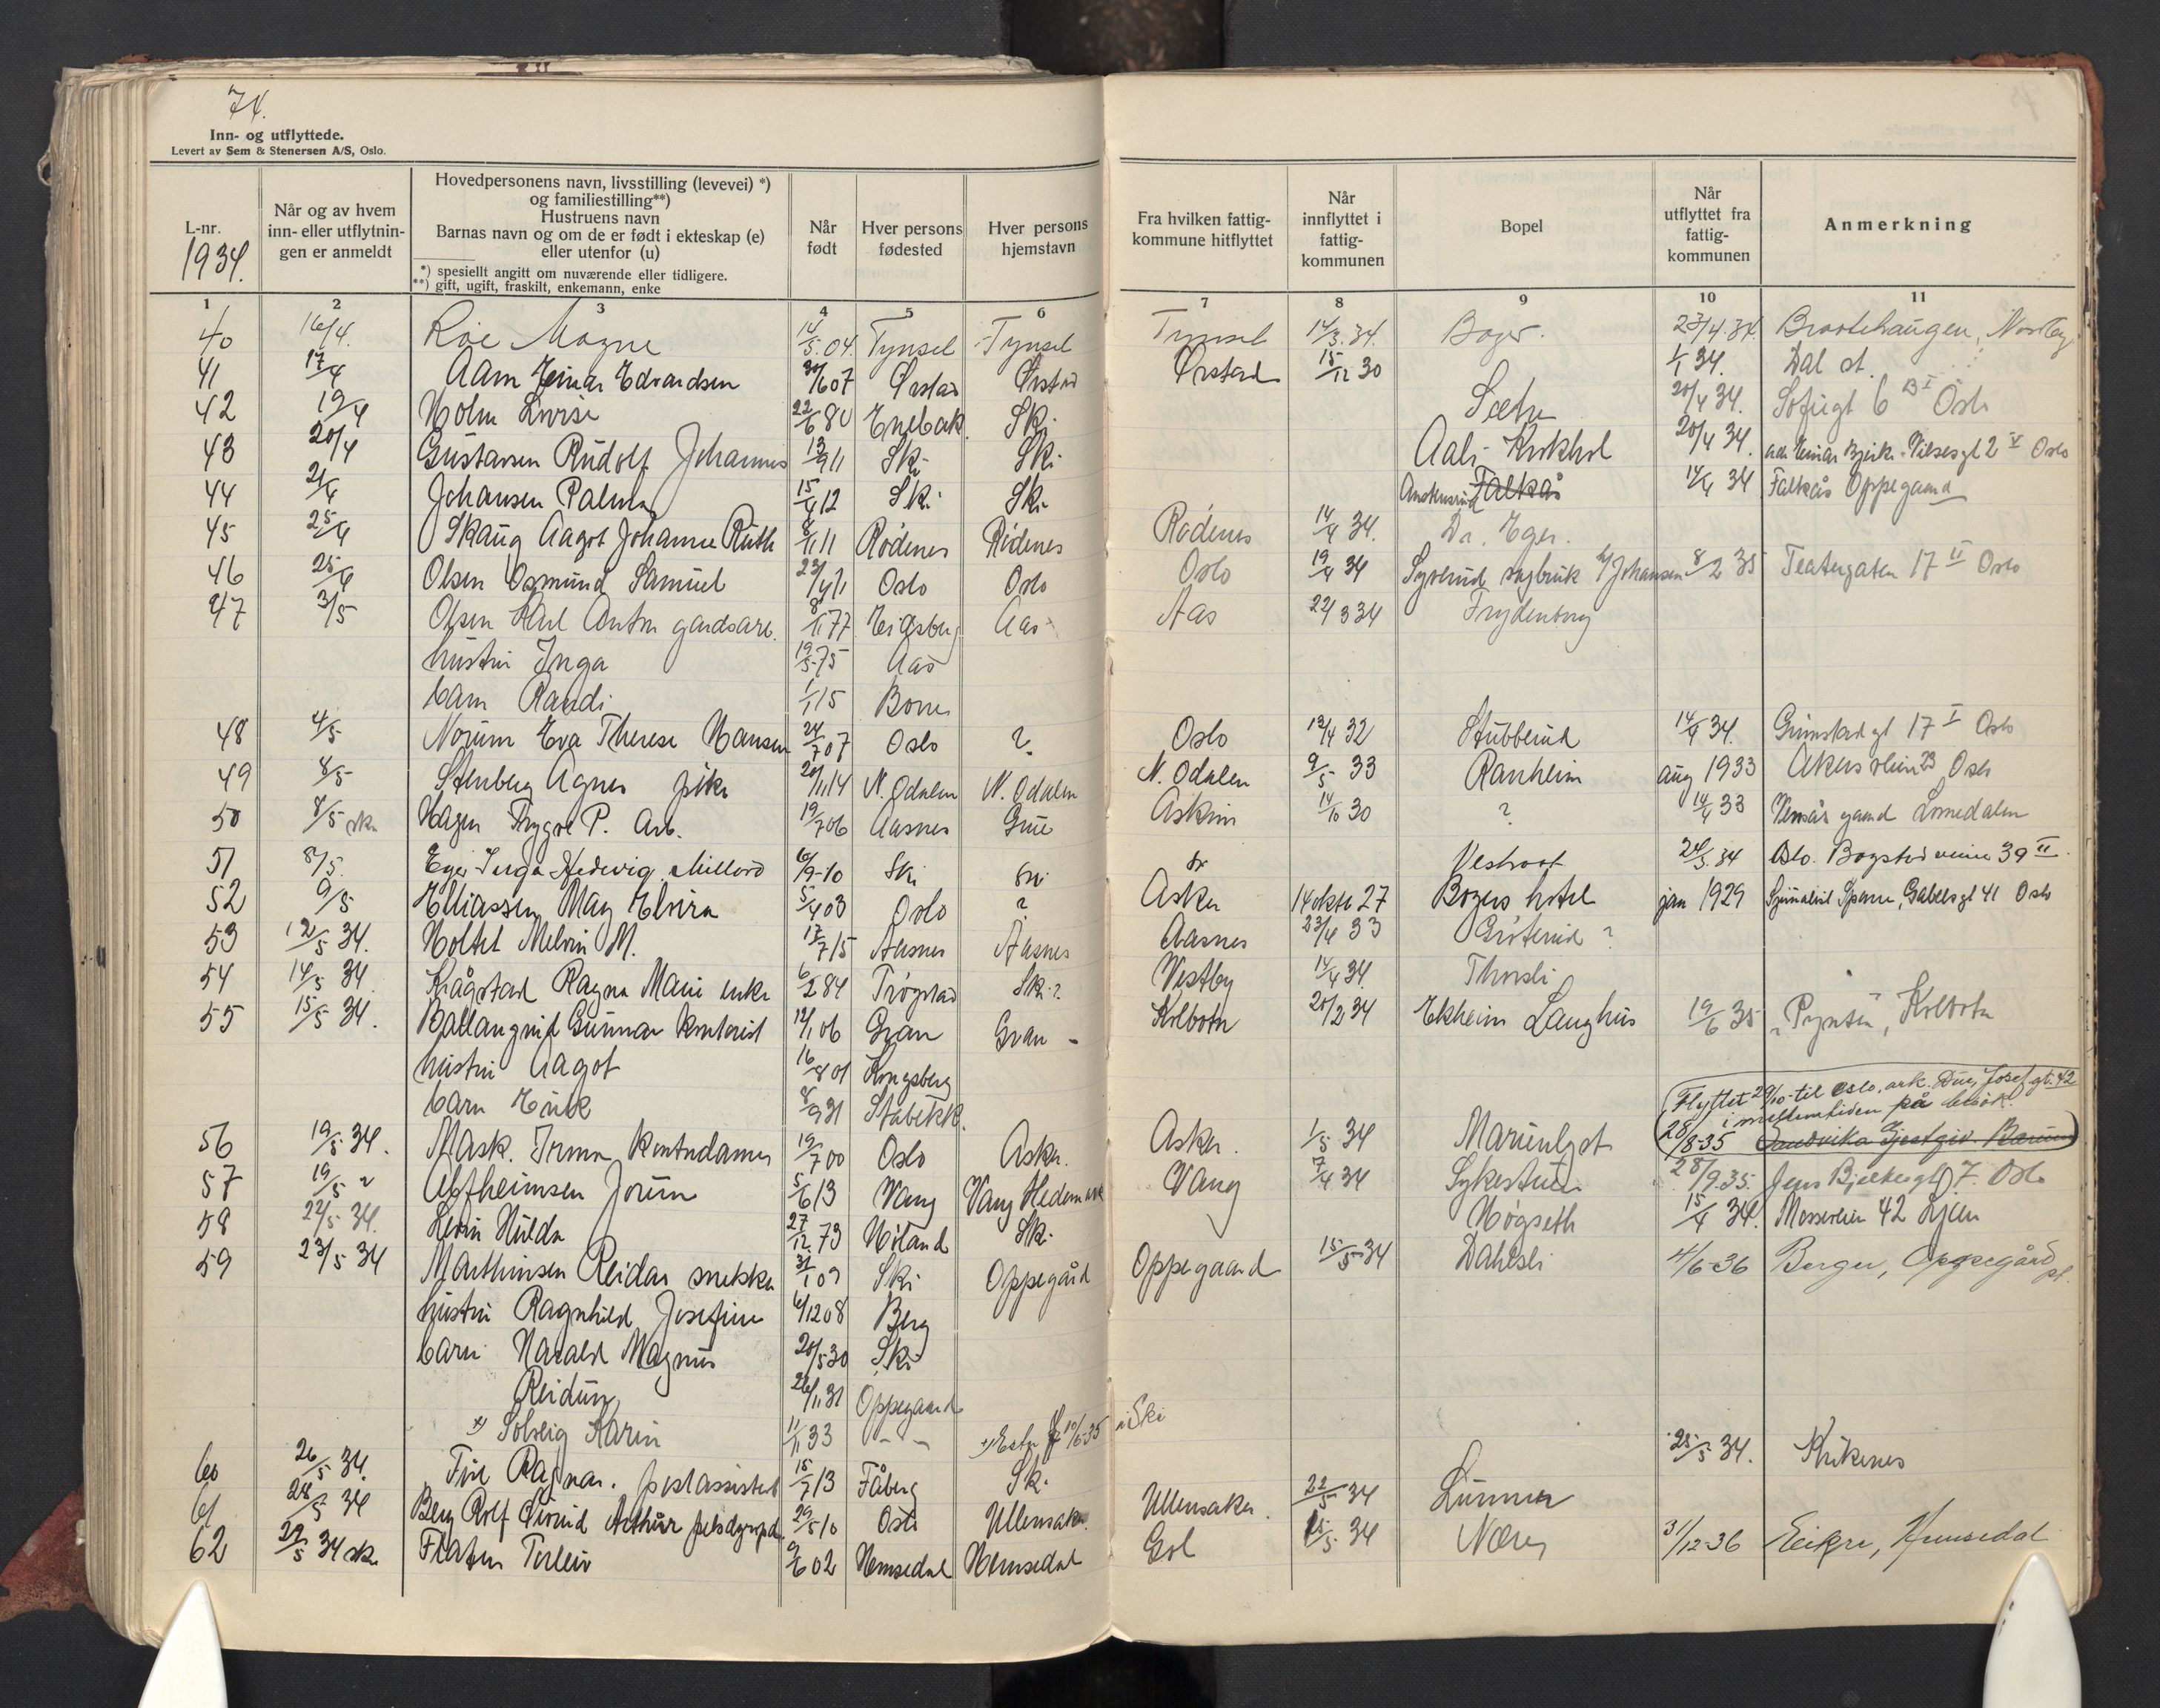 74.
Inn- og utflyttede.
Levert av Sem & Stenersen A/S, Oslo.
L-nr. 1934.
Når og av hvem inn- eller utflytnin- gen er anmeldt
Hovedpersonens navn, livsstilling (levevei) *) og familiestilling**) Hustruens navn Barnas navn og om de er født i ekteskap (e) eller utenfor (u)
*) spesiellt angitt om nuværende eller tidligere.
**) gift, ugift, fraskilt, enkemann, enke
Når født
Hver persons fødested
Hver persons hjemstavn
Fra hvilken fattig- kommune hitflyttet
Når innflyttet i fattig- kommunen
Bopel
Når utflyttet fra fattig- kommunen
Anmerkning
1 2 3 4 5 6 7 8 9 10 11
40 16/4. Roe Magne 14/5.04. Tynset Tynset Tynset 14/3.34. 23/4.34.
41 17/4 Aam Einar Edvardsen 30/6 07 Ørstad Ørstad Ørstad 15/12 30 1/1 34. Dal st.
42 19/4 Holm Lovise 22/6 80 Enebak Ski Sæter 20/4 34. Sofiegt 6 Oslo
43 20/4 Gustavsen Rudolf Johannes 13/9 11 Ski Ski 20/4 34. Oslo
44 21/4 Johansen Palma 15/4 12 Ski Ski Falkås 14/4 34 Falkås Oppegaard
45 25/4 Skaug Aagot Johanne Ruth 8/11 11 Rødenes Rødenes Rødenes 14/4 34. Dr. Eger.
46 25/4 Olsen Osmund Samuel Oslo Oslo Oslo 19/4 34 Johansen 8/2 35 Teatergaten 17 II Oslo
47 3/5 Olsen Karl Anton gardsarb. 8/1 77 Eidsberg Aas Aas 22/3 34 Frydenberg
hustru Inga 19/5 75 Aas
barn Randi 1/1 15
48 4/5 Norum Eva Therese Hansen 24/7 07 Oslo ? Oslo 12/4 32 Stubberud 14/4 34. Grimstadgt 17 I Oslo
49 8/5 Stenberg Agnes pike 20/1 14 N. Odalen N. Odalen N. Odalen 9/5 33 Ranheim aug 1933 Akersveien 23 Oslo
50 8/5 Hagen Trygve P. Arb. 19/7 06 Aasnes Grue Askim 14/10 30 ? 14/4 33 gaard Lomedalen
51 8/5. Eger Inga Hedevig Millord 6/9-10 Ski Vestraat 24/5.34 Oslo. Bogstadveien 39 II.
52 9/5 Elliassen May Elvira 5/4 03 Oslo ? Asker 14 oktb 27 Bogers hotel jan 1929 Gabelsgt 41 Oslo
53 12/5 34. Holtet Melvin M. 17/7 15 Aasnes Aasnes Aasnes 23/4 33 Grøterud ?
54 14/5 34. Kragstad Ragna Marie enke 6/2 84 Trøgstad Ski ? Vestby 14/4 34. Thorsli
55 15/5 34. Ballangrud Gunnar kontorist 12/1 06 Gran Gran Kolbotn 20/2 34 Ekheim Langhus 19/6 35 "Pynten", Kolbotn
hustru Aagot 16/8 01 Kongsberg
barn Erik 8/9 31 Stabekk.
Flyttet 29/10 til Oslo, Josefgt. 42
i mellemtiden på besøk.
56 19/5 34. Mask. Irma kontordame 19/7 00 Oslo Asker. Asker. 1/5 34 Marienlyst 28/8-35 Sandvika Gjestgiv. Bærum
57 19/5 Alfheimsen Jorun 5/6 13 Vang Vang Hedemark Vang 7/4 34 Sykestuen 28/9.35. Jens Bjelkesgt 7. Oslo
58 22/5 34. Levin Hulda 27/12.73 Høland Ski Høgseth 15/4 34. Mosseveien 42 Ljan
59 23/5 34 Marthinsen Reidar snekker 31/1 09 Ski Oppegård Oppegaard 15/5 34 Dahlsli 4/6-36 Berger, Oppegård pl.
hustru Ragnhild Josefine 6/12 08 Berg
barn Harald Magnus 20/5 30 Ski
Reidun 26/1 31 Oppegaard
x) Solveig Karin 11/11 33 - - x) Ester f 10/6 35 i Ski
60 26/5 34. Ragnar. postassistent 15/7 13 Fåberg Ski 25/5 34. Kirkenes
61 28/5 34 Berg Rolf Eivind Arthur 29/5 10 Oslo Ullensaker. Ullensaker. 22/5 34 Lunner
62 29/5 34 Flaten Torleiv 9/6 02 Hemsedal Hemsedal Gol 15/5 34 31/12-36 Eikre, Hemsedal